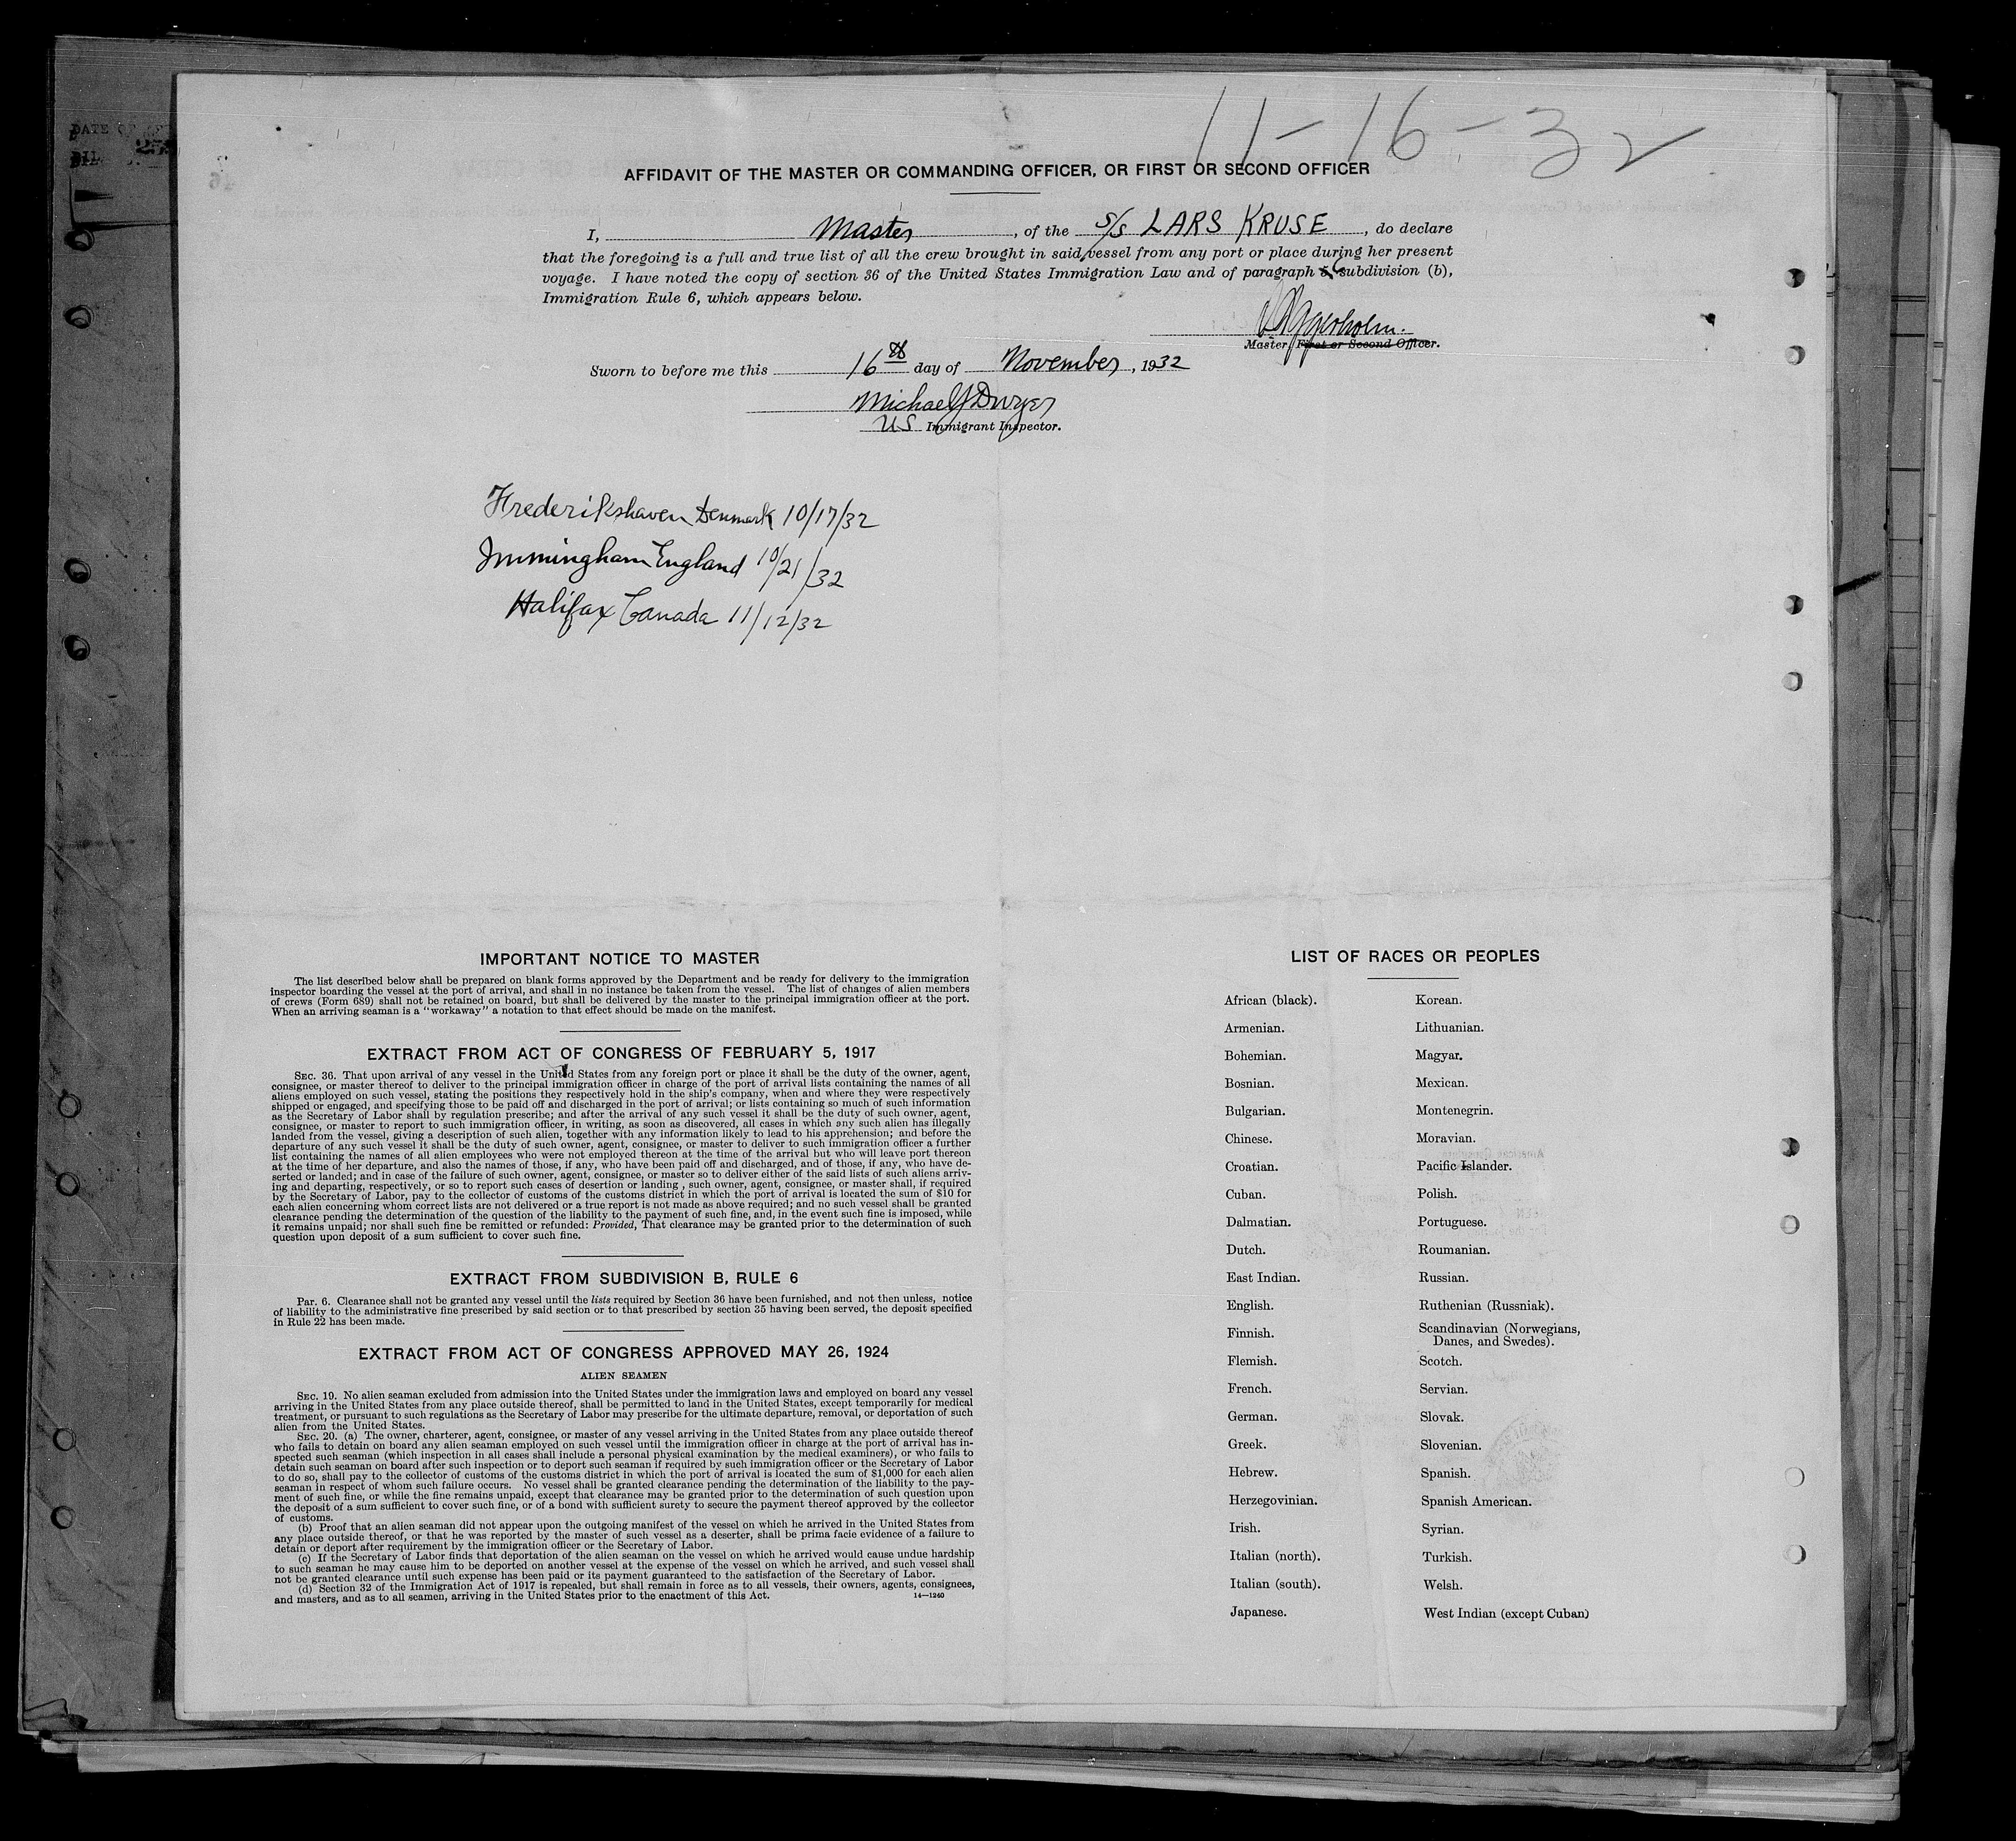 11-16-32
AFFIDAVIT OF THE MASTER OR COMMANDING OFFICER, OR FIRST OR SECOND OFFICER
I, Master, of the S/S LARS KRUSE, do declare
that the foregoing is a full and true list of all the crew brought in said vessel from any port or place during her present
voyage. I have noted the copy of section 36 of the United States Immigration Law and of paragraph 6 subdivision (b),
Immigration Rule 6, which appears below.
Master, First or Second Officer.
Sworn to before me this 16th day of November, 1932
Michael J Dwyer
US Immigrant Inspector.
Frederikshaven Denmark 10/17/32
Immingham England 10/21/32
Halifax Canada 11/12/32
IMPORTANT NOTICE TO MASTER
The list described below shall be prepared on blank forms approved by the Department and be ready for delivery to the immigration
inspector boarding the vessel at the port of arrival, and shall in no instance be taken from the vessel. The list of changes of alien members
of crews (Form 689) shall not be retained on board, but shall be delivered by the master to the principal immigration officer at the port.
When an arriving seaman is a "workaway" a notation to that effect should be made on the manifest.
EXTRACT FROM ACT OF CONGRESS OF FEBRUARY 5, 1917
SEC. 36. That upon arrival of any vessel in the United States from any foreign port or place it shall be the duty of the owner, agent,
consignee, or master thereof to deliver to the principal immigration officer in charge of the port of arrival lists containing the names of all
aliens employed on such vessel, stating the positions they respectively hold in the ship's company, when and where they were respectively
shipped or engaged, and specifying those to be paid off and discharged in the port of arrival; or lists containing so much of such information
as the Secretary of Labor shall by regulation prescribe; and after the arrival of any such vessel it shall be the duty of such owner, agent,
consignee, or master to report to such immigration officer, in writing, as soon as discovered, all cases in which any such alien has illegally
landed from the vessel, giving a description of such alien, together with any information likely to lead to his apprehension; and before the
departure of any such vessel it shall be the duty of such owner, agent, consignee, or master to deliver to such immigration officer a further
list containing the names of all alien employees who were not employed thereon at the time of the arrival but who will leave port thereon
at the time of her departure, and also the names of those, if any, who have been paid off and discharged, and of those, if any, who have de-
serted or landed; and in case of the failure of such owner, agent, consignee, or master so to deliver either of the said lists of such aliens arriv-
ing and departing, respectively, or so to report such cases of desertion or landing, such owner, agent, consignee, or master shall, if required
by the Secretary of Labor, pay to the collector of customs of the customs district in which the port of arrival is located the sum of $10 for
each alien concerning whom correct lists are not delivered or a true report is not made as above required; and no such vessel shall be granted
clearance pending the determination of the question of the liability to the payment of such fine, and, in the event such fine is imposed, while
it remains unpaid; nor shall such fine be remitted or refunded: Provided, That clearance may be granted prior to the determination of such
question upon deposit of a sum sufficient to cover such fine.
EXTRACT FROM SUBDIVISION B, RULE 6
Par. 6. Clearance shall not be granted any vessel until the lists required by Section 36 have been furnished, and not then unless, notice
of liability to the administrative fine prescribed by said section or to that prescribed by section 35 having been served, the deposit specified
in Rule 22 has been made.
EXTRACT FROM ACT OF CONGRESS APPROVED MAY 26, 1924
ALIEN SEAMEN
SEC. 19. No alien seaman excluded from admission into the United States under the immigration laws and employed on board any vessel
arriving in the United States from any place outside thereof, shall be permitted to land in the United States, except temporarily for medical
treatment, or pursuant to such regulations as the Secretary of Labor may prescribe for the ultimate departure, removal, or deportation of such
alien from the United States.
SEC. 20. (a) The owner, charterer, agent, consignee, or master of any vessel arriving in the United States from any place outside thereof
who fails to detain on board any alien seaman employed on such vessel until the immigration officer in charge at the port of arrival has in-
spected such seaman (which inspection in all cases shall include a personal physical examination by the medical examiners), or who fails to
detain such seaman on board after such inspection or to deport such seaman if required by such immigration officer or the Secretary of Labor
to do so, shall pay to the collector of customs of the customs district in which the port of arrival is located the sum of $1,000 for each alien
seaman in respect of whom such failure occurs. No vessel shall be granted clearance pending the determination of the liability to the pay-
ment of such fine, or while the fine remains unpaid, except that clearance may be granted prior to the determination of such question upon
the deposit of a sum sufficient to cover such fine, or of a bond with sufficient surety to secure the payment thereof approved by the collector
of customs.
(b) Proof that an alien seaman did not appear upon the outgoing manifest of the vessel on which he arrived in the United States from
any place outside thereof, or that he was reported by the master of such vessel as a deserter, shall be prima facie evidence of a failure to
detain or deport after requirement by the immigration officer or the Secretary of Labor.
(c) If the Secretary of Labor finds that deportation of the alien seaman on the vessel on which he arrived would cause undue hardship
to such seaman he may cause him to be deported on another vessel at the expense of the vessel on which he arrived, and such vessel shall
not be granted clearance until such expense has been paid or its payment guaranteed to the satisfaction of the Secretary of Labor.
(d) Section 32 of the Immigration Act of 1917 is repealed, but shall remain in force as to all vessels, their owners, agents, consignees,
and masters, and as to all seamen, arriving in the United States prior to the enactment of this Act.
14—1240
LIST OF RACES OR PEOPLES
African (black).
Armenian.
Bohemian.
Bosnian.
Bulgarian.
Chinese.
Croatian.
Cuban.
Dalmatian.
Dutch.
East Indian.
English.
Finnish.
Flemish.
French.
German.
Greek.
Hebrew.
Herzegovinian.
Irish.
Italian (north).
Italian (south).
Japanese.
Korean.
Lithuanian.
Magyar.
Mexican.
Montenegrin.
Moravian.
Pacific Islander.
Polish.
Portuguese.
Roumanian.
Russian.
Ruthenian (Russniak).
Scandinavian (Norwegians,
Danes, and Swedes).
Scotch.
Servian.
Slovak.
Slovenian.
Spanish.
Spanish American.
Syrian.
Turkish.
Welsh.
West Indian (except Cuban)